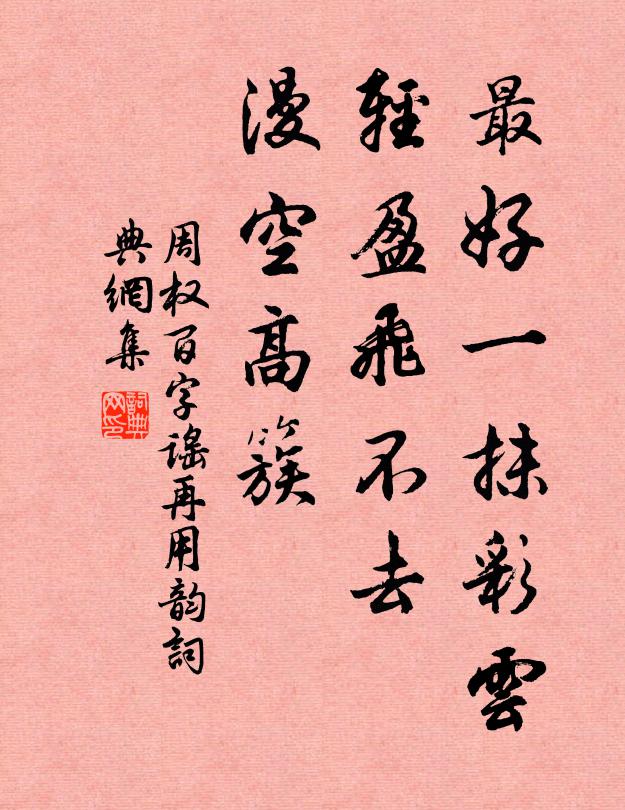 最好一抹彩雲
輕盈飛不去
漫空高簇
周权百字謠再用韵詞
典網集
詞典网印